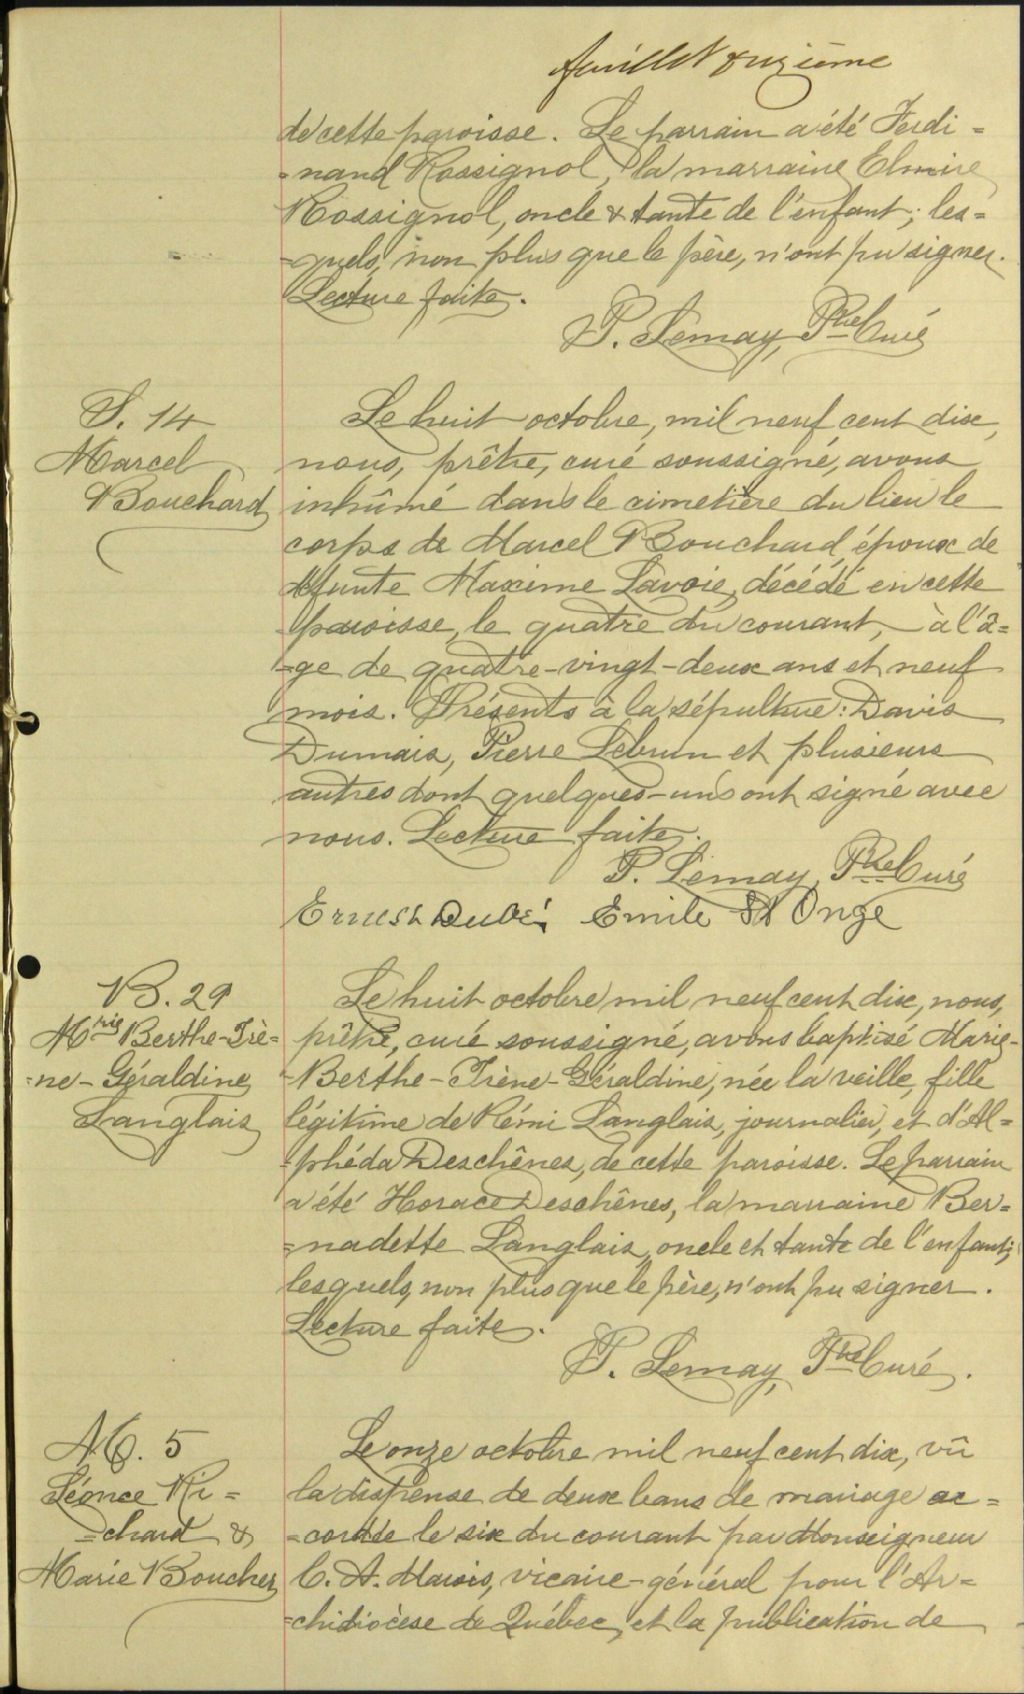 feuillet onzième
de cette paroisse. Le parrain a été Ferdi =
= nand Rossignol, la marraine Elmire
Rossignol, oncle & tante de l'enfant; les=
=quels, non plus que le père, n'ont pu signer.
Lecture faite.
P. Lemay, Ptre Curé
S. 14
Marcel
Bouchard
Le huit octobre, mil neuf cent dix,
nous, prêtre, curé soussigné, avons
inhûmé dans le cimetière du lieu le
corps de Marcel Bouchard, époux de
défunte Maxime Lavoie, décédé en cette
paroisse, le quatre du courant, à l'â=
=ge de quatre-vingt-deux ans et neuf
mois. Présents à la sépulture: Davis
Dumais, Pierre Lebrun et plusieurs
autres dont quelques-uns ont signé avec
nous. Lecture faite.
P. Lemay, Ptre Curé
Ernest Dubé, Emile St Onge
B. 29
Mrie Berthe-Irè=
=ne-Géraldine
Langlais
Le huit octobre mil neuf cent dix, nous,
prêtre, curé soussigné, avons baptisé Marie-
-Berthe-Irène-Géraldine, née la veille, fille
légitime de Rémi Langlais, journalier, et d'Al=
=phéda Deschênes, de cette paroisse. Le parrain
a été Horace Deschênes, la marraine Ber=
=nadette Langlais, oncle et tante de l'enfant;
lesquels, non plus que le père, n'ont pu signer.
Lecture faite.
P. Lemay, Ptre Curé.
M. 5
Léonce Ri=
=chard &
Marie Boucher
Le onze octobre mil neuf cent dix, vû
la dispense de deux bans de mariage ac=
=cordée le six du courant par Monseigneur
C. A. Marois, vicaire-général pour l'Ar=
=chidiocèse de Québec, et la publication de